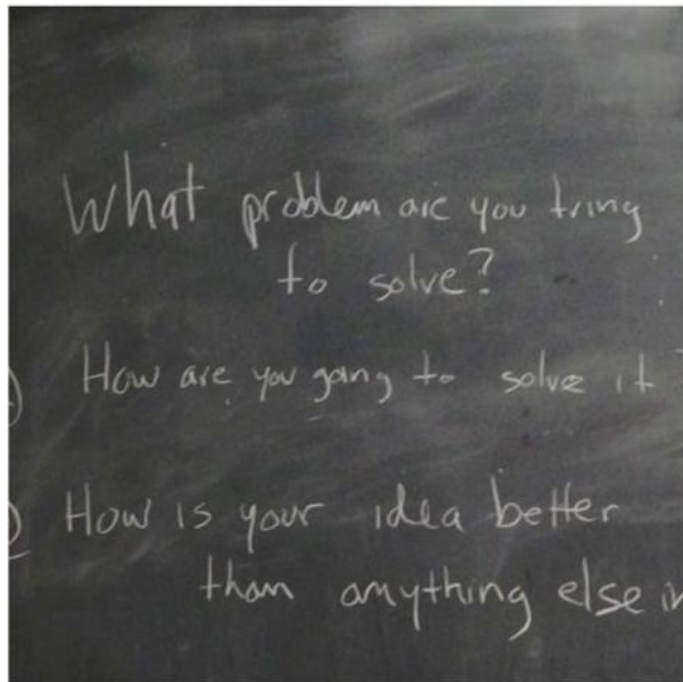 What problem are you tring
to solve?
How are you going to solve it ?
How is your idea better
than anything else in